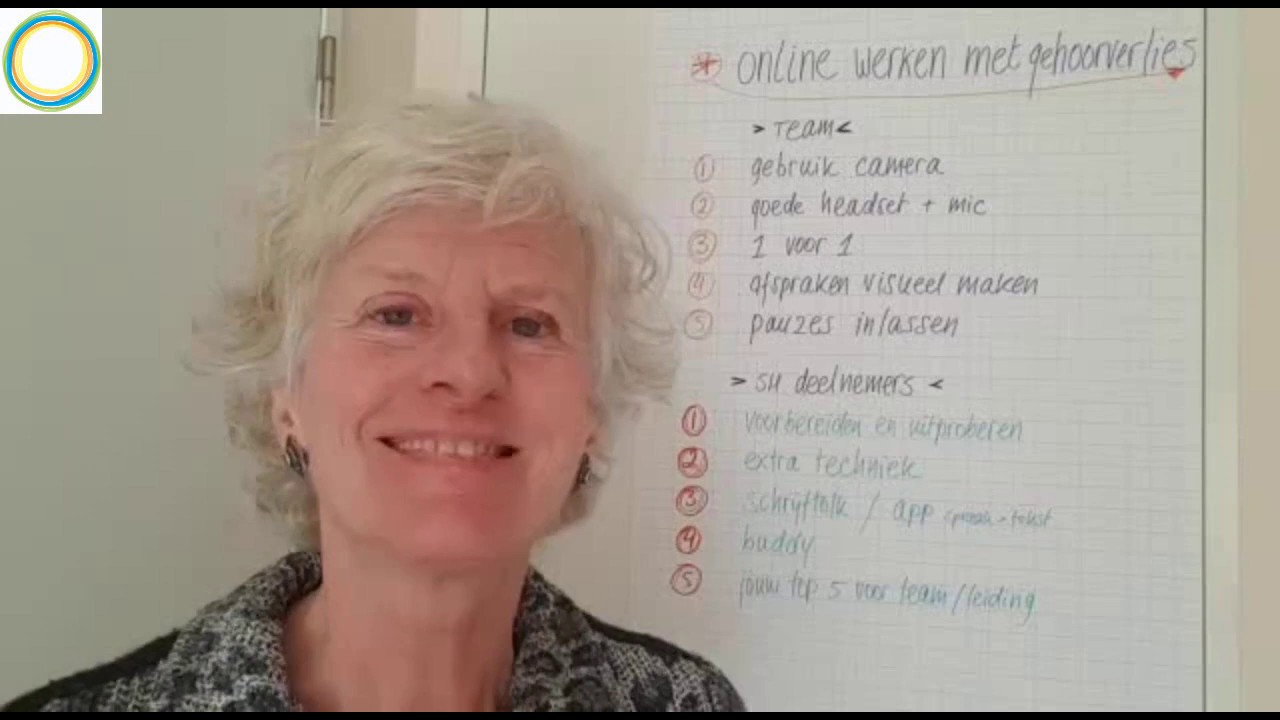 * online werken met gehoorverlies
> Team <
① gebruik camera
② goede headset + mic
③ 1 voor 1
④ afspraken visueel maken
⑤ pauzes inlassen
> SH deelnemers <
① voorbereiden en uitproberen
② extra techniek
③ schrijftolk / app spraak - tekst
④ buddy
⑤ jouw top 5 voor team/leiding